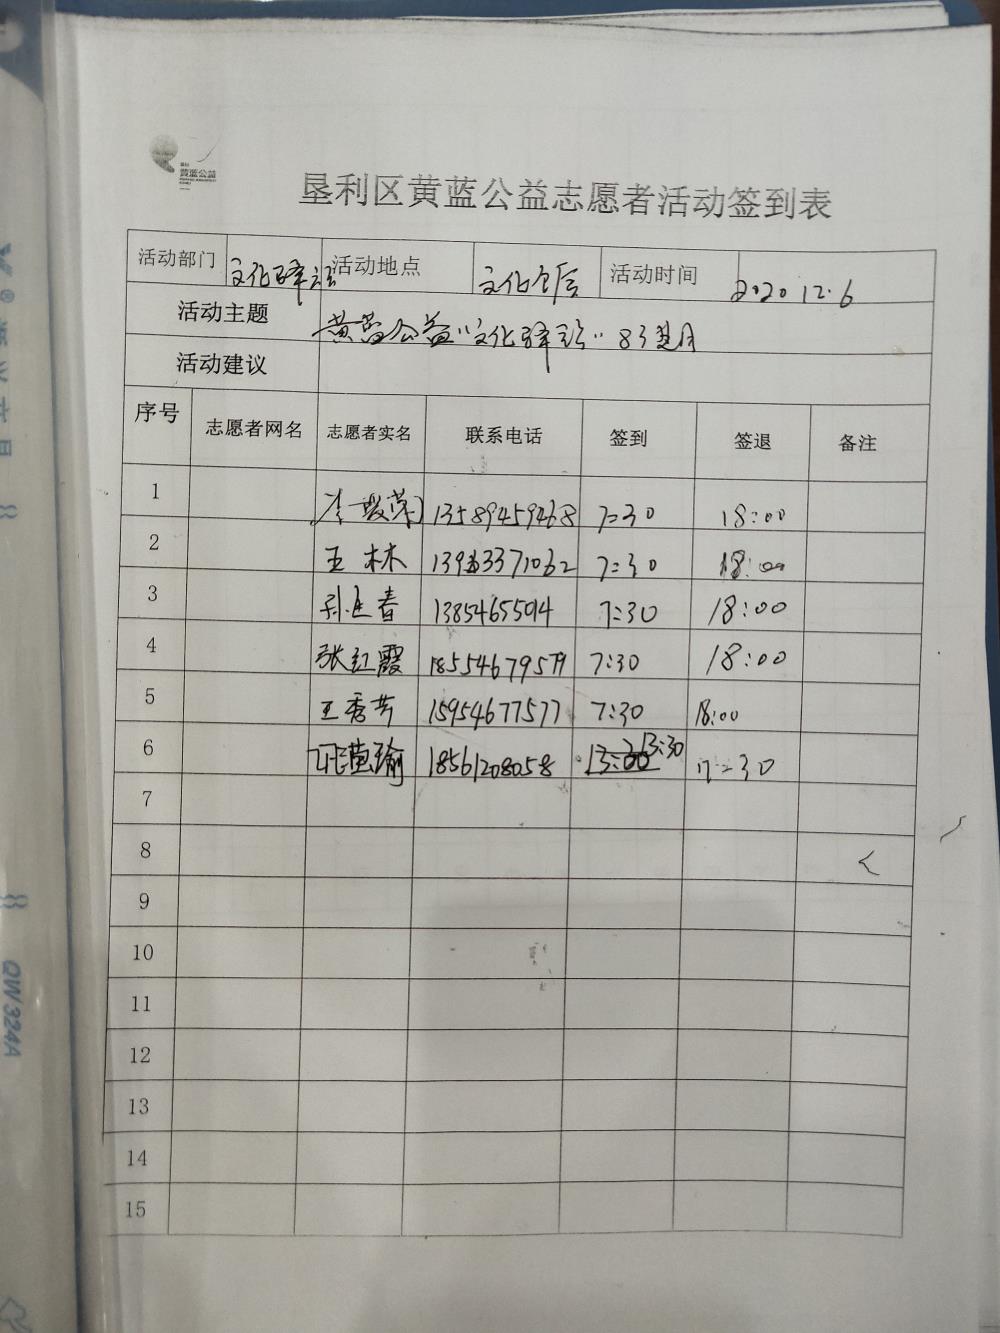 黄蓝公益
垦利区黄蓝公益志愿者活动签到表
活动部门 文化驿站 活动地点 文化仓店 活动时间 2020.12.6
活动主题 黄蓝公益"文化驿站"
活动建议
序号 志愿者网名 志愿者实名 联系电话 签到 签退 备注
1 13589459468 7:30 18:00
2 王林 7:30 18:00
3 孙延春 13854655014 7:30 18:00
4 张红霞 18554679579 7:30 18:00
5 王秀芳 15954677577 7:30 18:00
6 18561208058 13:30 17:30
7
8
9
10
11
12
13
14
15
QW324A